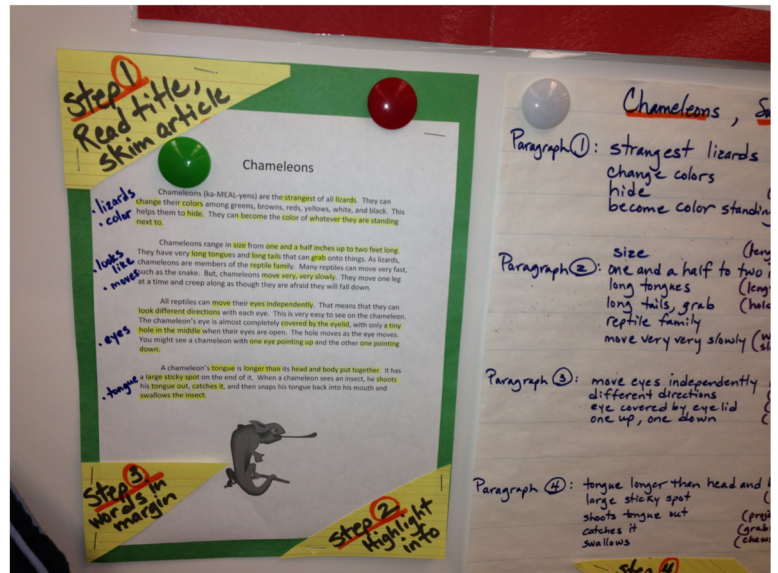 Step 1
Read title,
skim article
Chameleons
Chameleons (ka-MEAL-yens) are the strangest of all lizards. They can
change their colors among greens, browns, reds, yellows, white, and black. This
helps them to hide. They can become the color of whatever they are standing
next to.
• lizards
• color
Chameleons range in size from one and a half inches up to two feet long.
They have very long tongues and long tails that can grab onto things. As lizards,
chameleons are members of the reptile family. Many reptiles can move very fast,
such as the snake. But, chameleons move very, very slowly. They move one leg
at a time and creep along as though they are afraid they will fall down.
• looks
like
• moves
All reptiles can move their eyes independently. That means that they can
look different directions with each eye. This is very easy to see on the chameleon.
The chameleon's eye is almost completely covered by the eyelid, with only a tiny
hole in the middle when their eyes are open. The hole moves as the eye moves.
You might see a chameleon with one eye pointing up and the other one pointing
down.
• eyes
A chameleon's tongue is longer than its head and body put together. It has
a large sticky spot on the end of it. When a chameleon sees an insect, he shoots
his tongue out, catches it, and then snaps his tongue back into his mouth and
swallows the insect.
• tongue
Step 3
words in
margin
Step 2
Highlight
info
Chameleons,
Paragraph 1: strangest lizards
change colors
hide
become color standin
size
Paragraph 2: one and a half to two
long tongues
long tails, grab
reptile family
move very very slowly
Paragraph 3: move eyes independently
different directions
eye covered by eyelid
one up, one down
Paragraph 4: tongue longer than head and
large sticky spot
shoots tongue out
catches it
swallows
Step 4